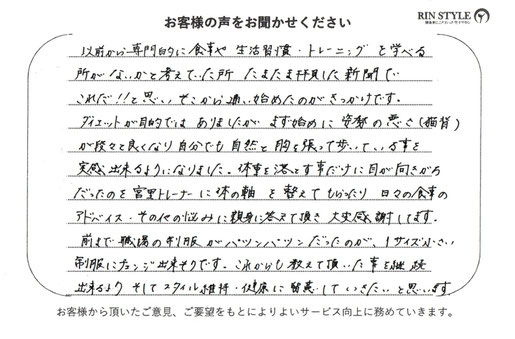 お客様の声をお聞かせください
RIN STYLE
以前から専門的に食事や生活習慣・トレーニングを学べる
所がないかと考えていた所 たまたま拝見した新聞で
これだ!!と思い そこから通い始めたのがきっかけです。
ダイエットが目的ではありましたが まず始めに姿勢の悪さ(猫背)
が段々と良くなり自分でも自然と胸を張って歩いている事を
実感出来るようになりました。体重を落とす事だけに目が向きがち
だったのを宮里トレーナーに体の軸を整えてもらったり 日々の食事の
アドバイス・その他の悩みに親身に答えて頂き大変感謝してます。
前まで職場の制服がパツンパツンだったのが、1サイズ小さい
制服にチェンジ出来そうです。これからも教えて頂いた事を継続
出来るよう そしてスタイル維持・健康に留意していきたいと思います。
お客様から頂いたご意見、ご要望をもとによりよいサービス向上に務めていきます。